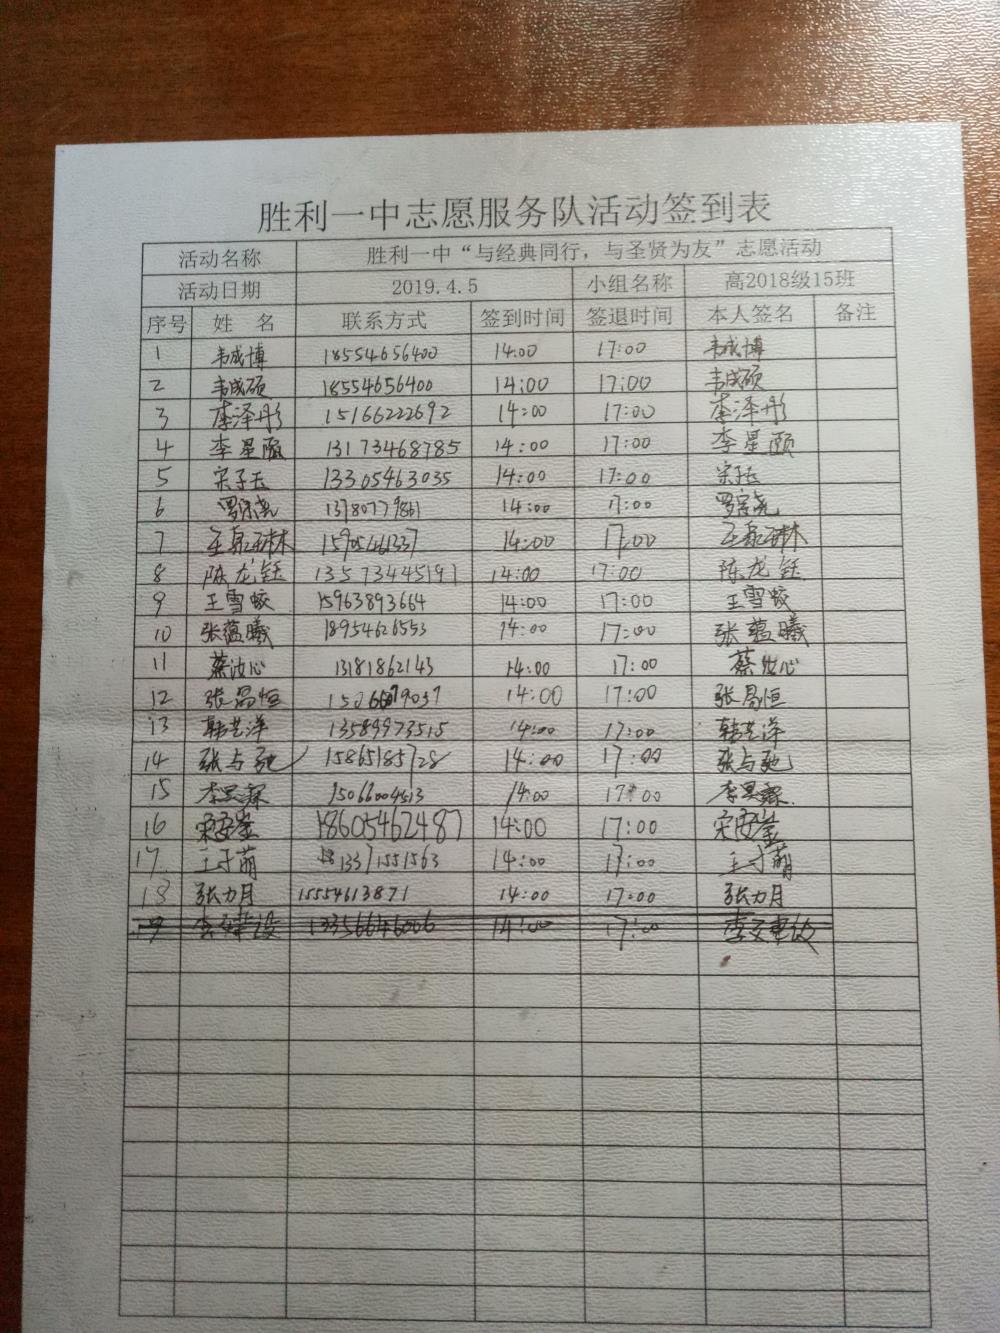 胜利一中志愿服务队活动签到表
活动名称 胜利一中“与经典同行，与圣贤为友”志愿活动
活动日期 2019.4.5 小组名称 高2018级15班
序号 姓 名 联系方式 签到时间 签退时间 本人签名 备注
1 韦成博 18554656400 14:00 17:00 韦成博
2 韦成硕 18554656400 14:00 17:00 韦成硕
3 李泽彤 15166222692 14:00 17:00 李泽彤
4 李星颐 13173468785 14:00 17:00 李星颐
5 宋子玉 13305463035 14:00 17:00 宋子玉
6 罗宗尧 13780779861 14:00 17:00 罗宗尧
7 王泉琳 15905461337 14:00 17:00 王泉琳
8 陈龙钰 13573445191 14:00 17:00 陈龙钰
9 王雪皎 15963893664 14:00 17:00 王雪皎
10 张蕴曦 18954626553 14:00 17:00 张蕴曦
11 蔡汝心 13181862143 14:00 17:00 蔡汝心
12 张昌恒 14:00 17:00 张昌恒
13 韩艺洋 13589973515 14:00 17:00 韩艺洋
14 张与驰 15865185728 14:00 17:00 张与驰
15 李昊霖 15066004513 14:00 17:00 李昊霖
16 宋安崟 18605462487 14:00 17:00 宋安崟
17 王子萌 13371551563 14:00 17:00 王子萌
18 张力月 15554613871 14:00 17:00 张力月
19 13356646006 14:00 17:00